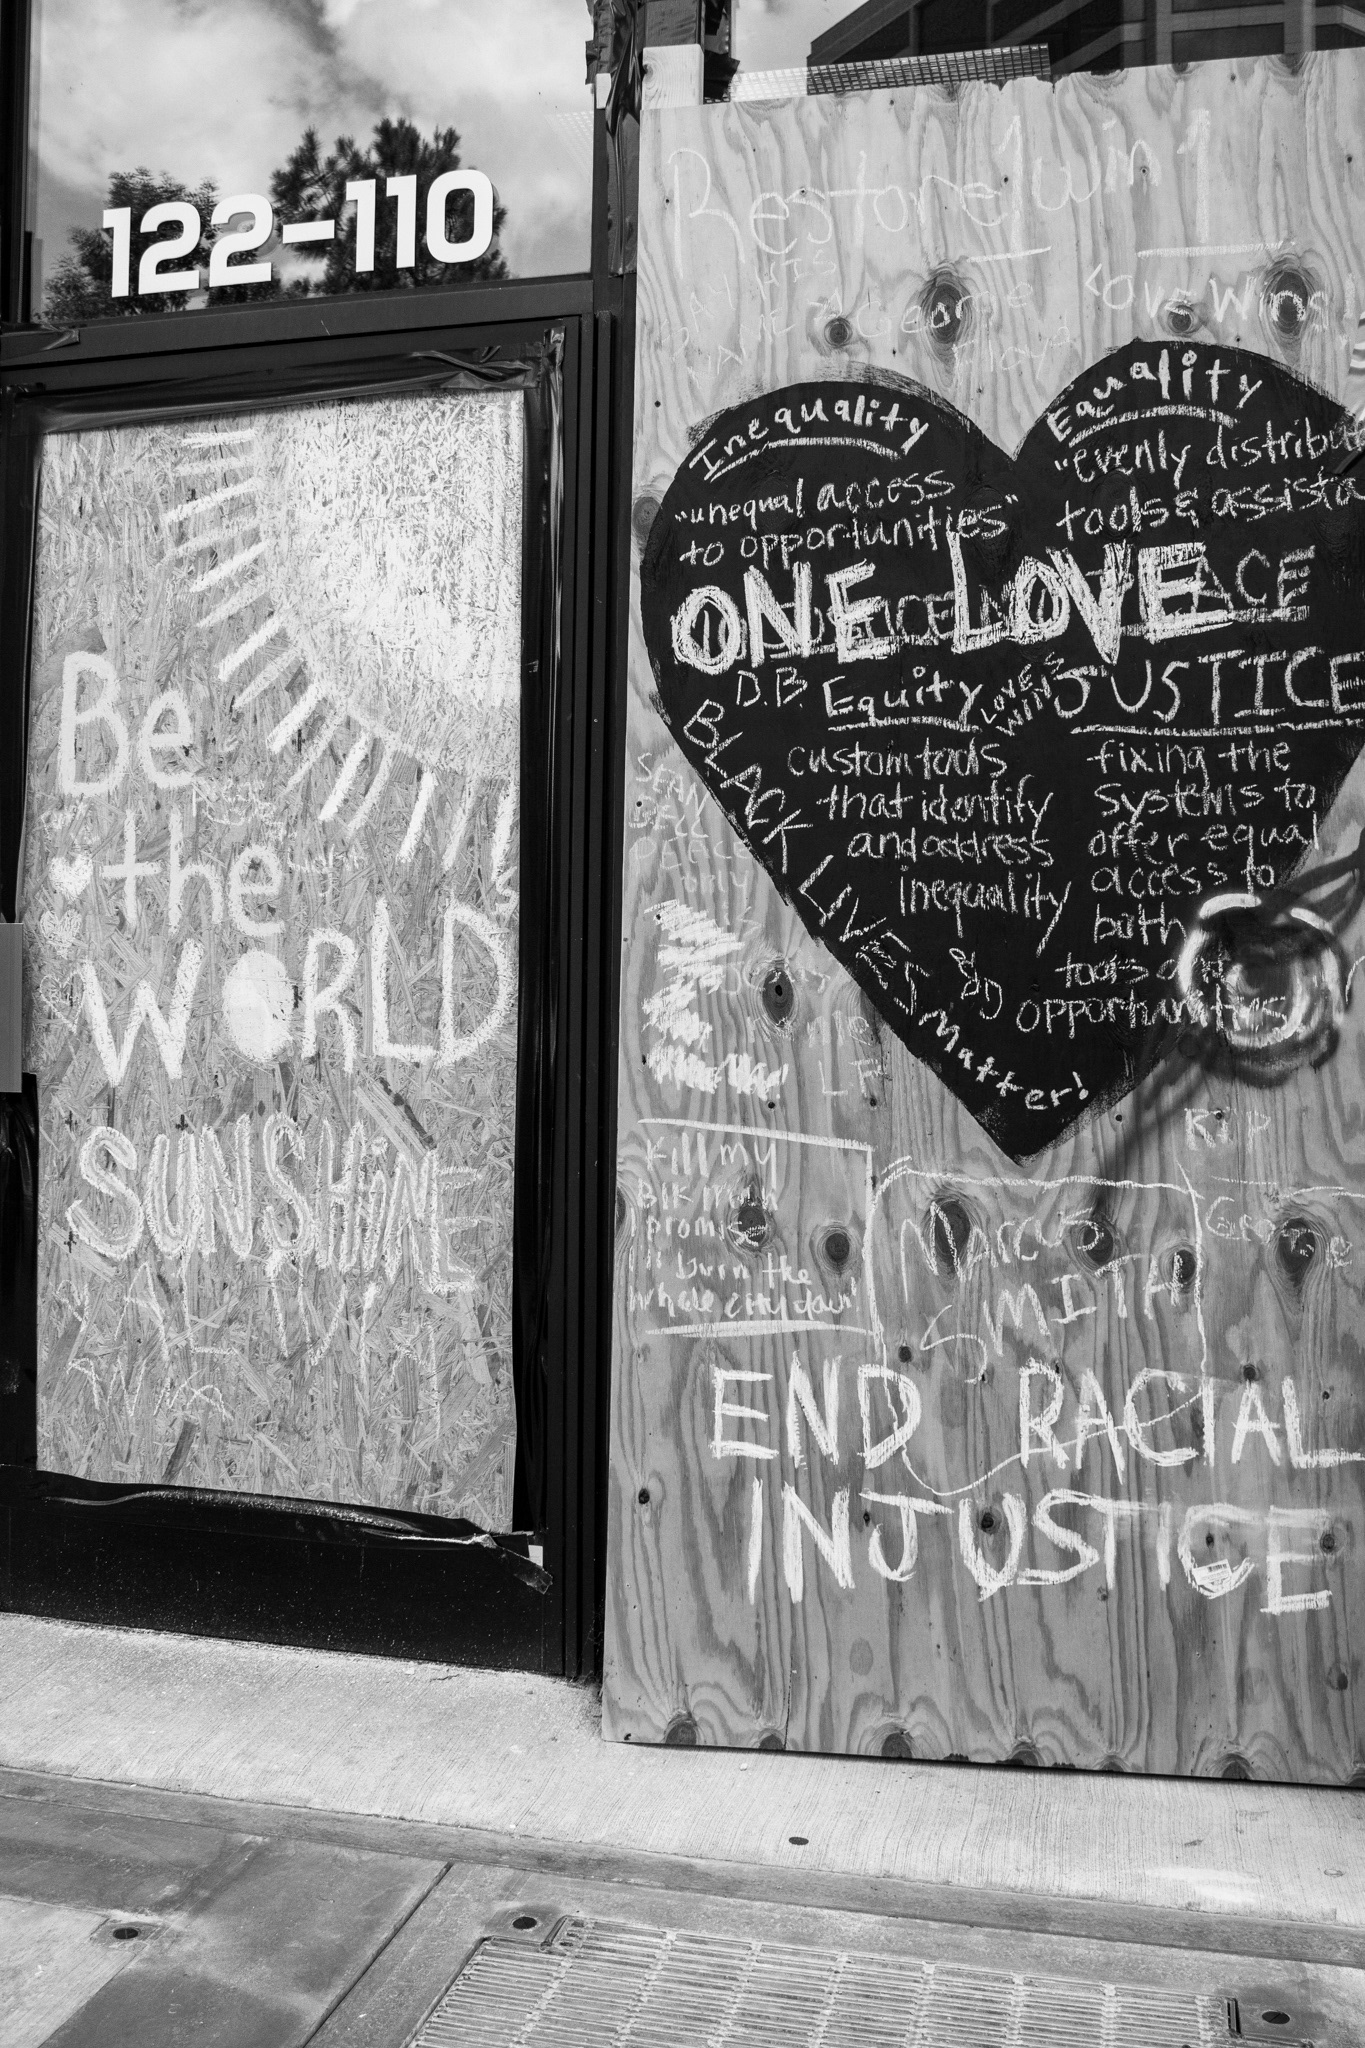 122-110
Be
the
WORLD
SUNSHiNE
Restore
1 win 1
SAY HIS
NAME
George
Floyd
LOVE Wins!
Inequality
"unequal access
to opportunities"
Equality
"evenly distribut
tools & assista
ONE LOVE
PEACE
D.B.
Equity
LOVE
WINS
custom tools
that identify
and address
inequality
JUSTICE
fixing the
systems to
offer equal
access to
both
tools and
opportunities
BLACK LIVES Matter!
SEAN
BELL
PEACE
only
Kill my
Blk man
I promise
I'll burn the
whole city down"
RIP
George
MARCUS
SMITH
END RACIAL
INJUSTICE